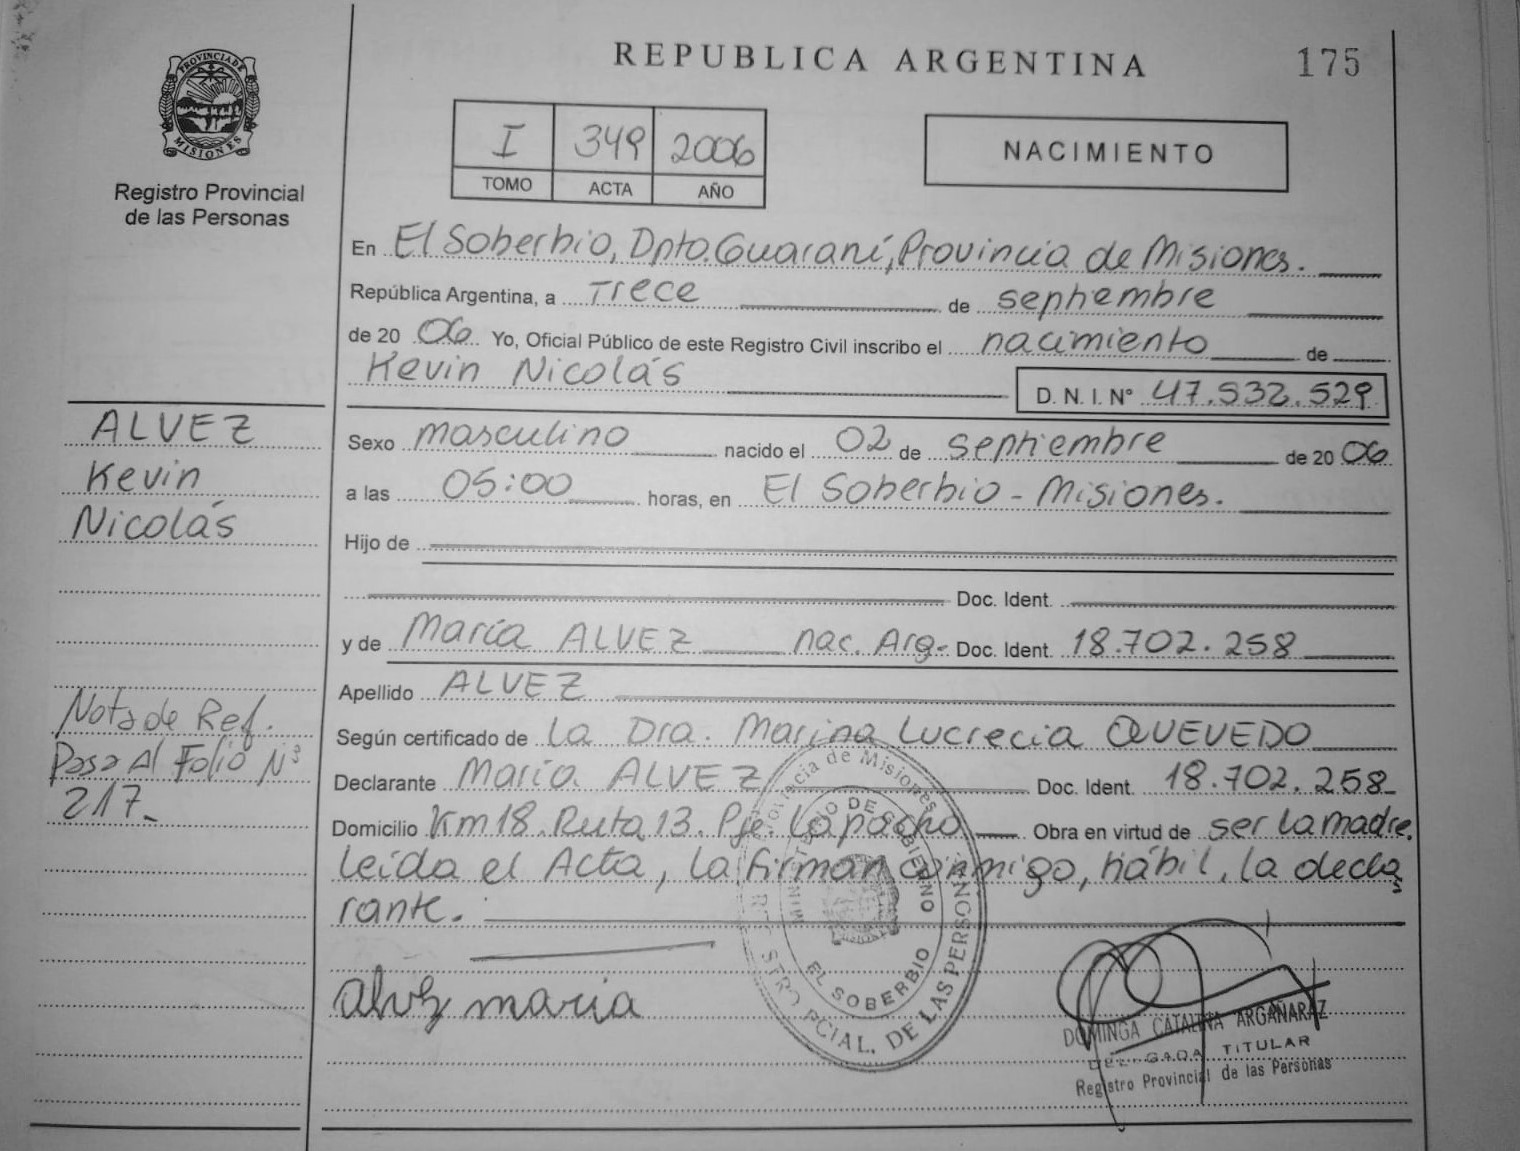 PROVINCIA DE
MISIONES
Registro Provincial
de las Personas
REPUBLICA ARGENTINA
175
I 349 2006
TOMO ACTA AÑO
NACIMIENTO
En El Soberbio, Dpto. Guaraní, Provincia de Misiones.
República Argentina, a Trece de septiembre
de 2006 Yo, Oficial Público de este Registro Civil inscribo el nacimiento de
Kevin Nicolás
D. N. I. N° 47.532.529
ALVEZ
Kevin
Nicolás
Sexo masculino nacido el 02 de septiembre de 2006
a las 05:00 horas, en El Soberbio - Misiones.
Hijo de
Doc. Ident.
y de María ALVEZ nac. Arg. Doc. Ident. 18.702.258
Apellido ALVEZ
Nota de Ref.
Pasa Al Folio N°
217.
Según certificado de la Dra. Marina Lucrecia QUEVEDO
Declarante María ALVEZ Doc. Ident. 18.702.258
Domicilio Km 18. Ruta 13. Pje. Lapacho Obra en virtud de ser la madre.
leída el Acta, la firman conmigo, hábil, la decla
rante.
Alvez maria
Provincia de Misiones
MINISTERIO DE GOBIERNO
EL SOBERBIO
REGISTRO PCIAL. DE LAS PERSONAS
DOMINGA CATALINA ARGAÑARAZ
DELEGADA TITULAR
Registro Provincial de las Personas